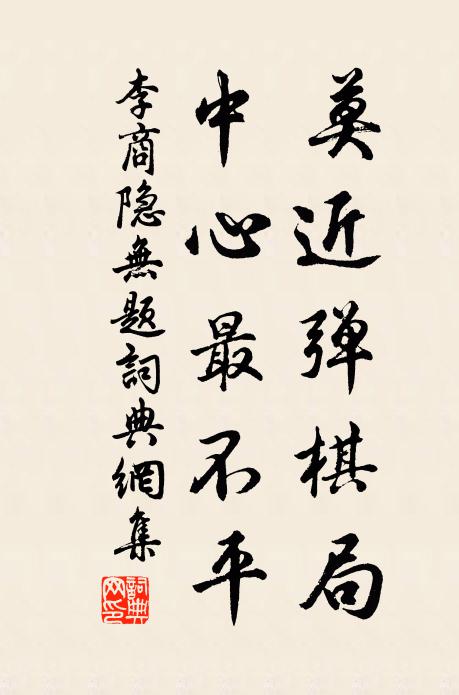 莫近弹棋局
中心最不平
李商隐無题詞典網集
詞典网印